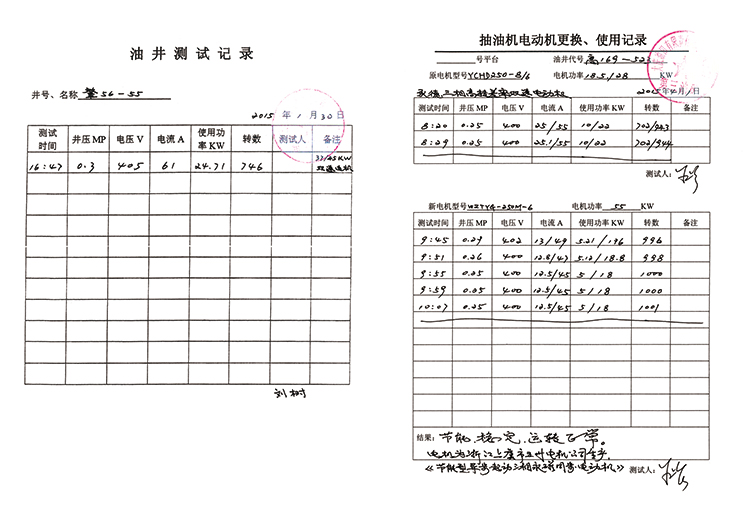 油井测试记录
井号、名称 繁56-55
2015年1月30日
测试时间 井压MP 电压V 电流A 使用功率KW 转数 测试人 备注
16:47 0.3 405 61 24.71 746 37/25KW 双速电机
刘树
抽油机电动机更换、使用记录
号平台 油井代号 高169-523
原电机型号YCHD250-8/6 电机功率18.5/28 KW
2015年4月1日
测试时间 井压MP 电压V 电流A 使用功率KW 转数 备注
8:20 0.25 400 25/55 10/22 702/943
8:29 0.25 400 25.1/55 10/22 702/944
测试人:
新电机型号 -250M-6 电机功率 55 KW
测试时间 井压MP 电压V 电流A 使用功率KW 转数 备注
9:45 0.29 402 13/49 5.21/19.6 996
9:51 0.26 400 12.8/47 5.12/18.8 998
9:55 0.25 400 12.5/45 5/18 1000
9:59 0.25 400 12.5/45 5/18 1000
10:07 0.25 400 12.5/45 5/18 1001
结果: 节能、稳定、运转正常。
电机为浙江上虞市 电机公司生产
《节能型异步起动三相永磁同步电动机》 测试人: